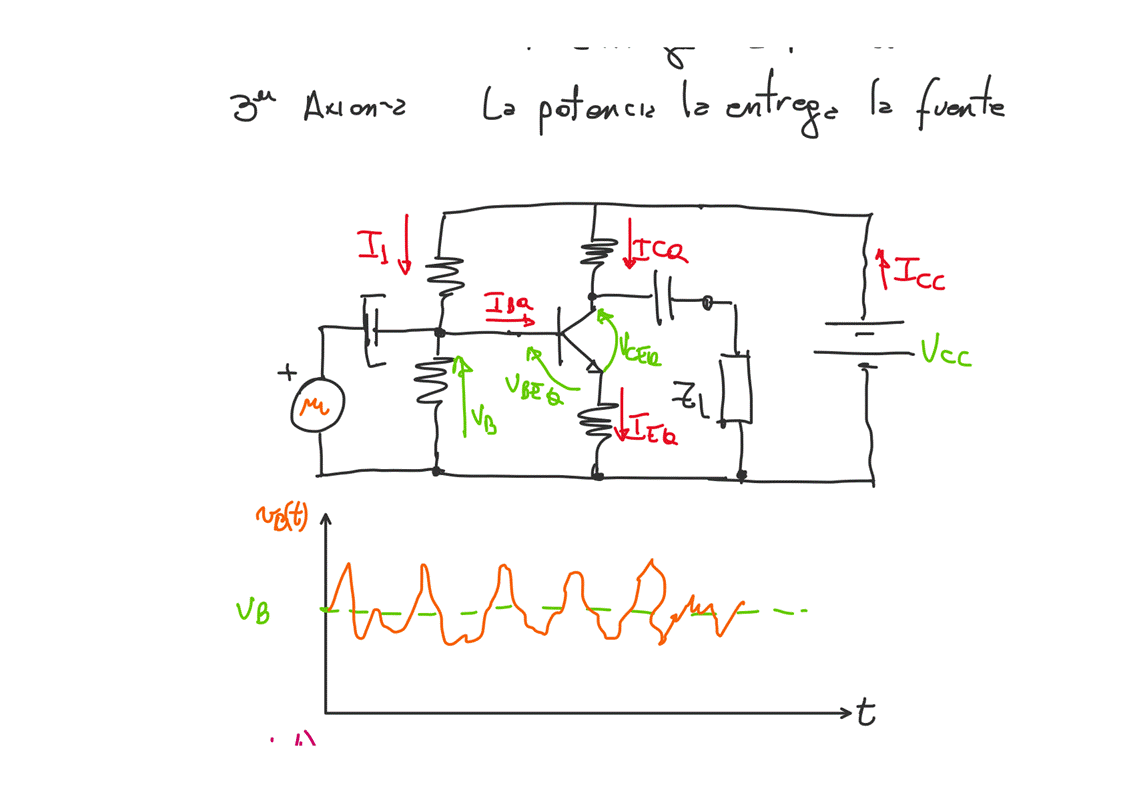 3er Axioma La potencia la entrega la fuente
I1
ICQ
ICC
IBQ
VCEQ
VCC
+
VBEQ
ZL
VB
IEQ
vB(t)
VB
t